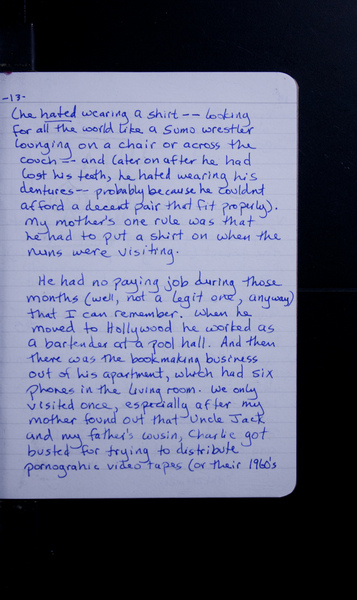 -13-
(he hated wearing a shirt -- looking
for all the world like a sumo wrestler
lounging on a chair or across the
couch -- and later on after he had
lost his teeth, he hated wearing his
dentures -- probably because he couldnt
afford a decent pair that fit properly).
My mother's one rule was that
he had to put a shirt on when the
nuns were visiting.
He had no paying job during those
months (well, not a legit one, anyway)
that I can remember. When he
moved to Hollywood he worked as
a bartender at a pool hall. And then
there was the bookmaking business
out of his apartment, which had six
phones in the living room. We only
visited once, especially after my
mother found out that Uncle Jack
and my father's cousin, Charlie got
busted for trying to distribute
pornograhic video tapes (or their 1960's